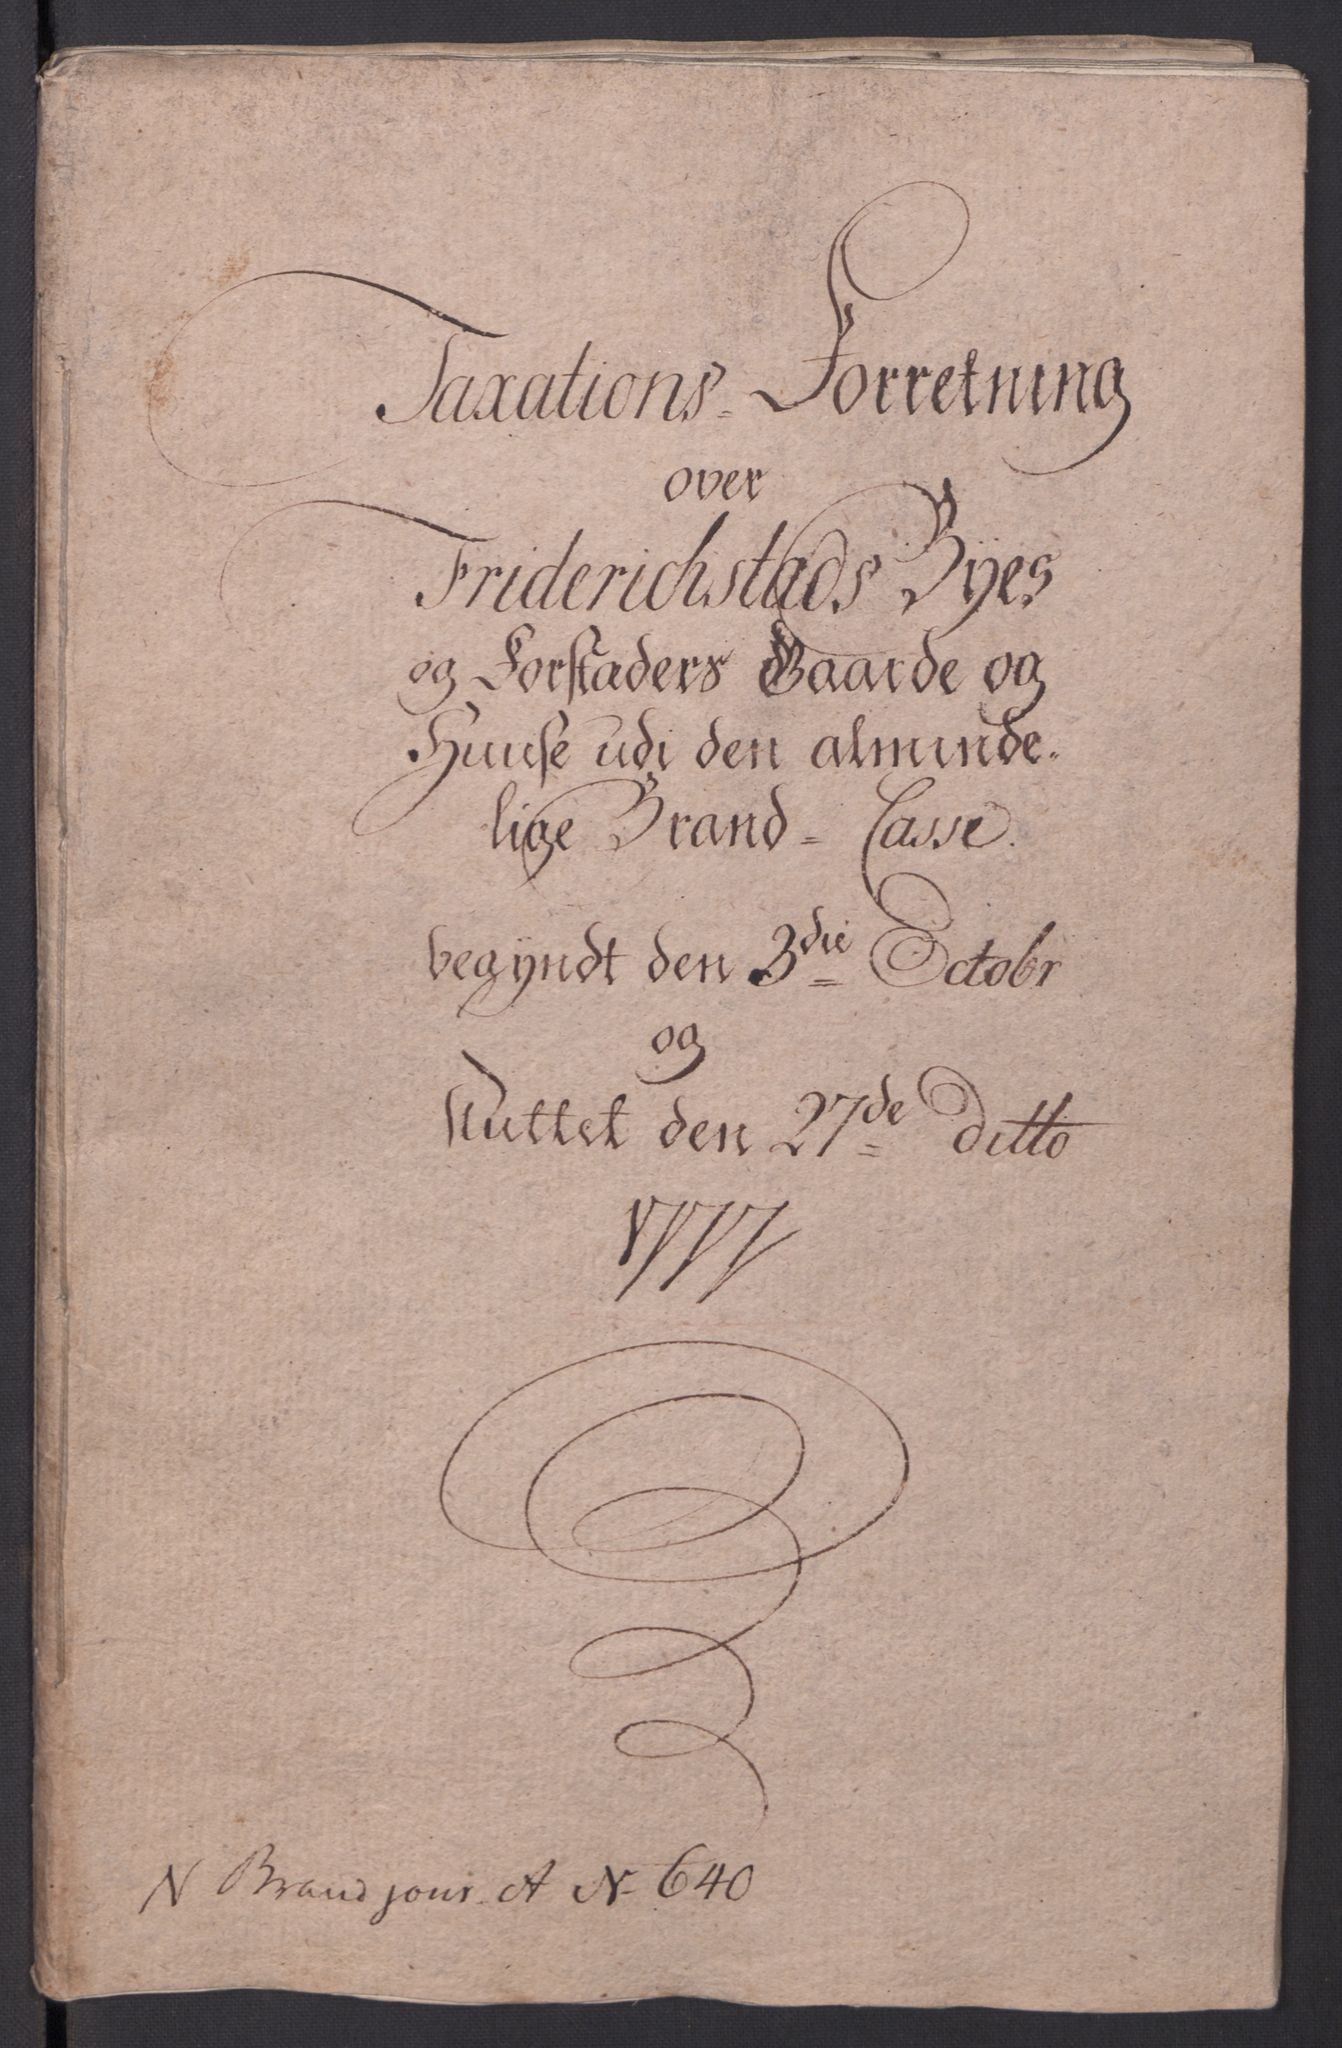 Taxations= Forretning
over
Friderichstads Byes
og Forstaders Gaarde og
Huuse udi den alminde=
lige Brand= Casse.
begyndt den 3die Octobr
og
sluttet den 27de Ditto
1777
N Brand jour. A N- 640